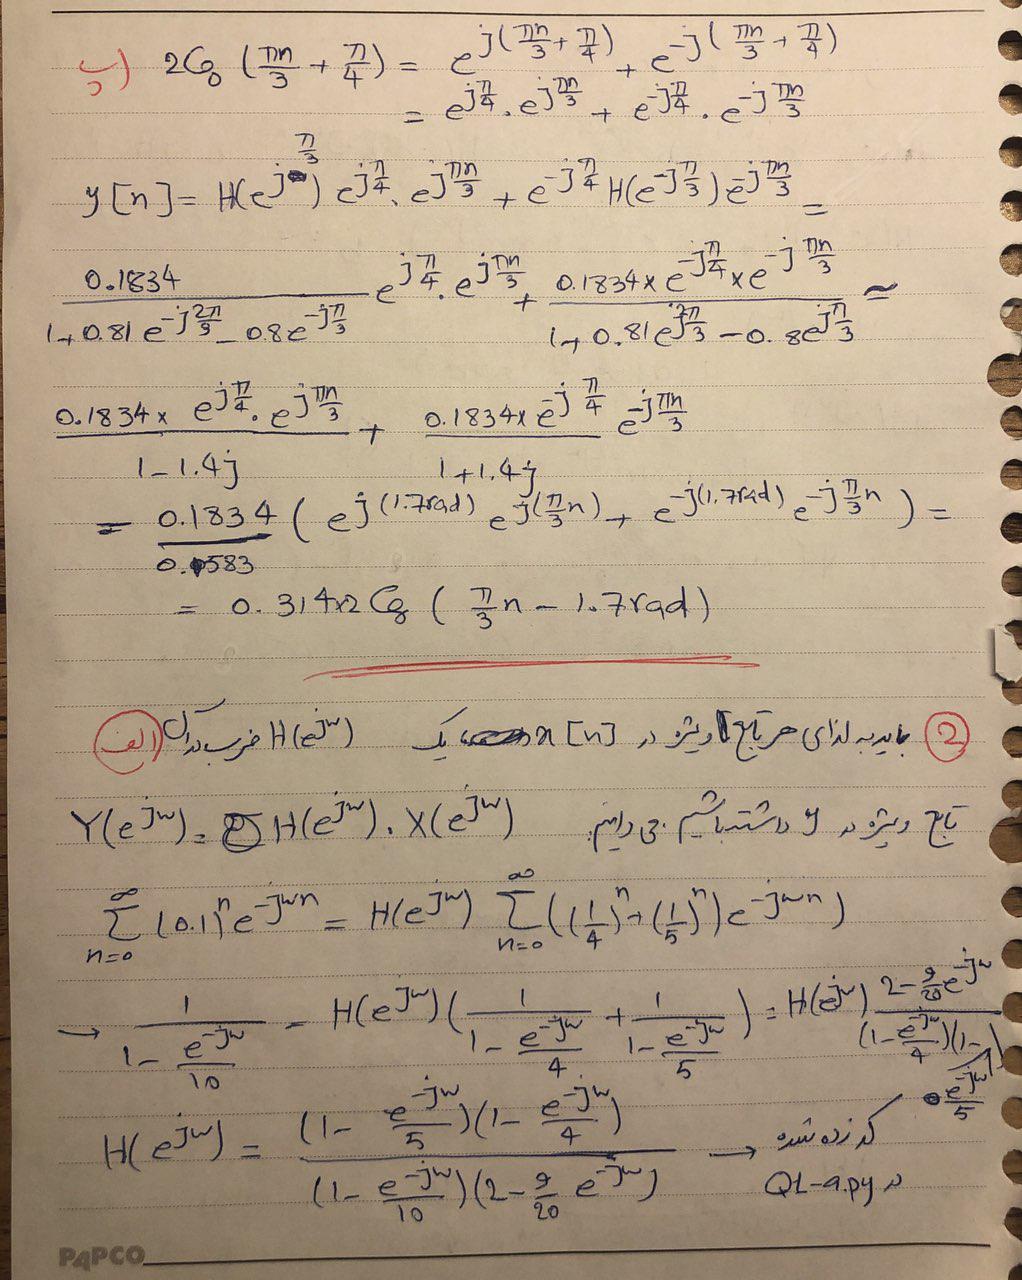 ب) 2Cos (πn/3 + π/4) = e^{j(πn/3 + π/4)} + e^{-j(πn/3 + π/4)}
= e^{jπ/4} . e^{jπn/3} + e^{-jπ/4} . e^{-jπn/3}
y[n] = H(e^{jπ/3}) e^{jπ/4} . e^{jπn/3} + e^{-jπ/4} H(e^{-jπ/3}) e^{-jπn/3} =
0.1834 / (1 + 0.81 e^{-j2π/3} - 0.8 e^{-jπ/3}) e^{jπ/4} . e^{jπn/3} + (0.1834 × e^{-jπ/4} × e^{-jπn/3}) / (1 + 0.81 e^{j2π/3} - 0.8 e^{jπ/3}) ≈
(0.1834 × e^{jπ/4} . e^{jπn/3}) / (1 - 1.4j) + (0.1834 × e^{-jπ/4}) / (1 + 1.4j) e^{-jπn/3}
= 0.1834 / 0.583 ( e^{j(1.7rad)} e^{j(π/3 n)} + e^{-j(1.7rad)} e^{-jπ/3 n} ) =
= 0.314×2 Cos ( π/3 n - 1.7rad )
2 باید به ازای هر تابع ویژه در x[n] یک H(e^{jw}) ضرب در آن الف
تابع ویژه در y داشته باشیم. می دانیم: Y(e^{jw}) = H(e^{jw}) . X(e^{jw})
∑_{n=0}^{∞} (0.1)^n e^{-jwn} = H(e^{jw}) ∑_{n=0}^{∞} ((1/4)^n + (1/5)^n) e^{-jwn})
→ 1 / (1 - e^{-jw}/10) = H(e^{jw}) ( 1 / (1 - e^{-jw}/4) + 1 / (1 - e^{-jw}/5) ) = H(e^{jw}) (2 - 9/20 e^{-jw}) / ((1 - e^{-jw}/4)(1 - e^{-jw}/5))
H(e^{jw}) = ((1 - e^{-jw}/5)(1 - e^{-jw}/4)) / ((1 - e^{-jw}/10)(2 - 9/20 e^{-jw})) → کد زده شده
در Q1-a.py
PAPCO